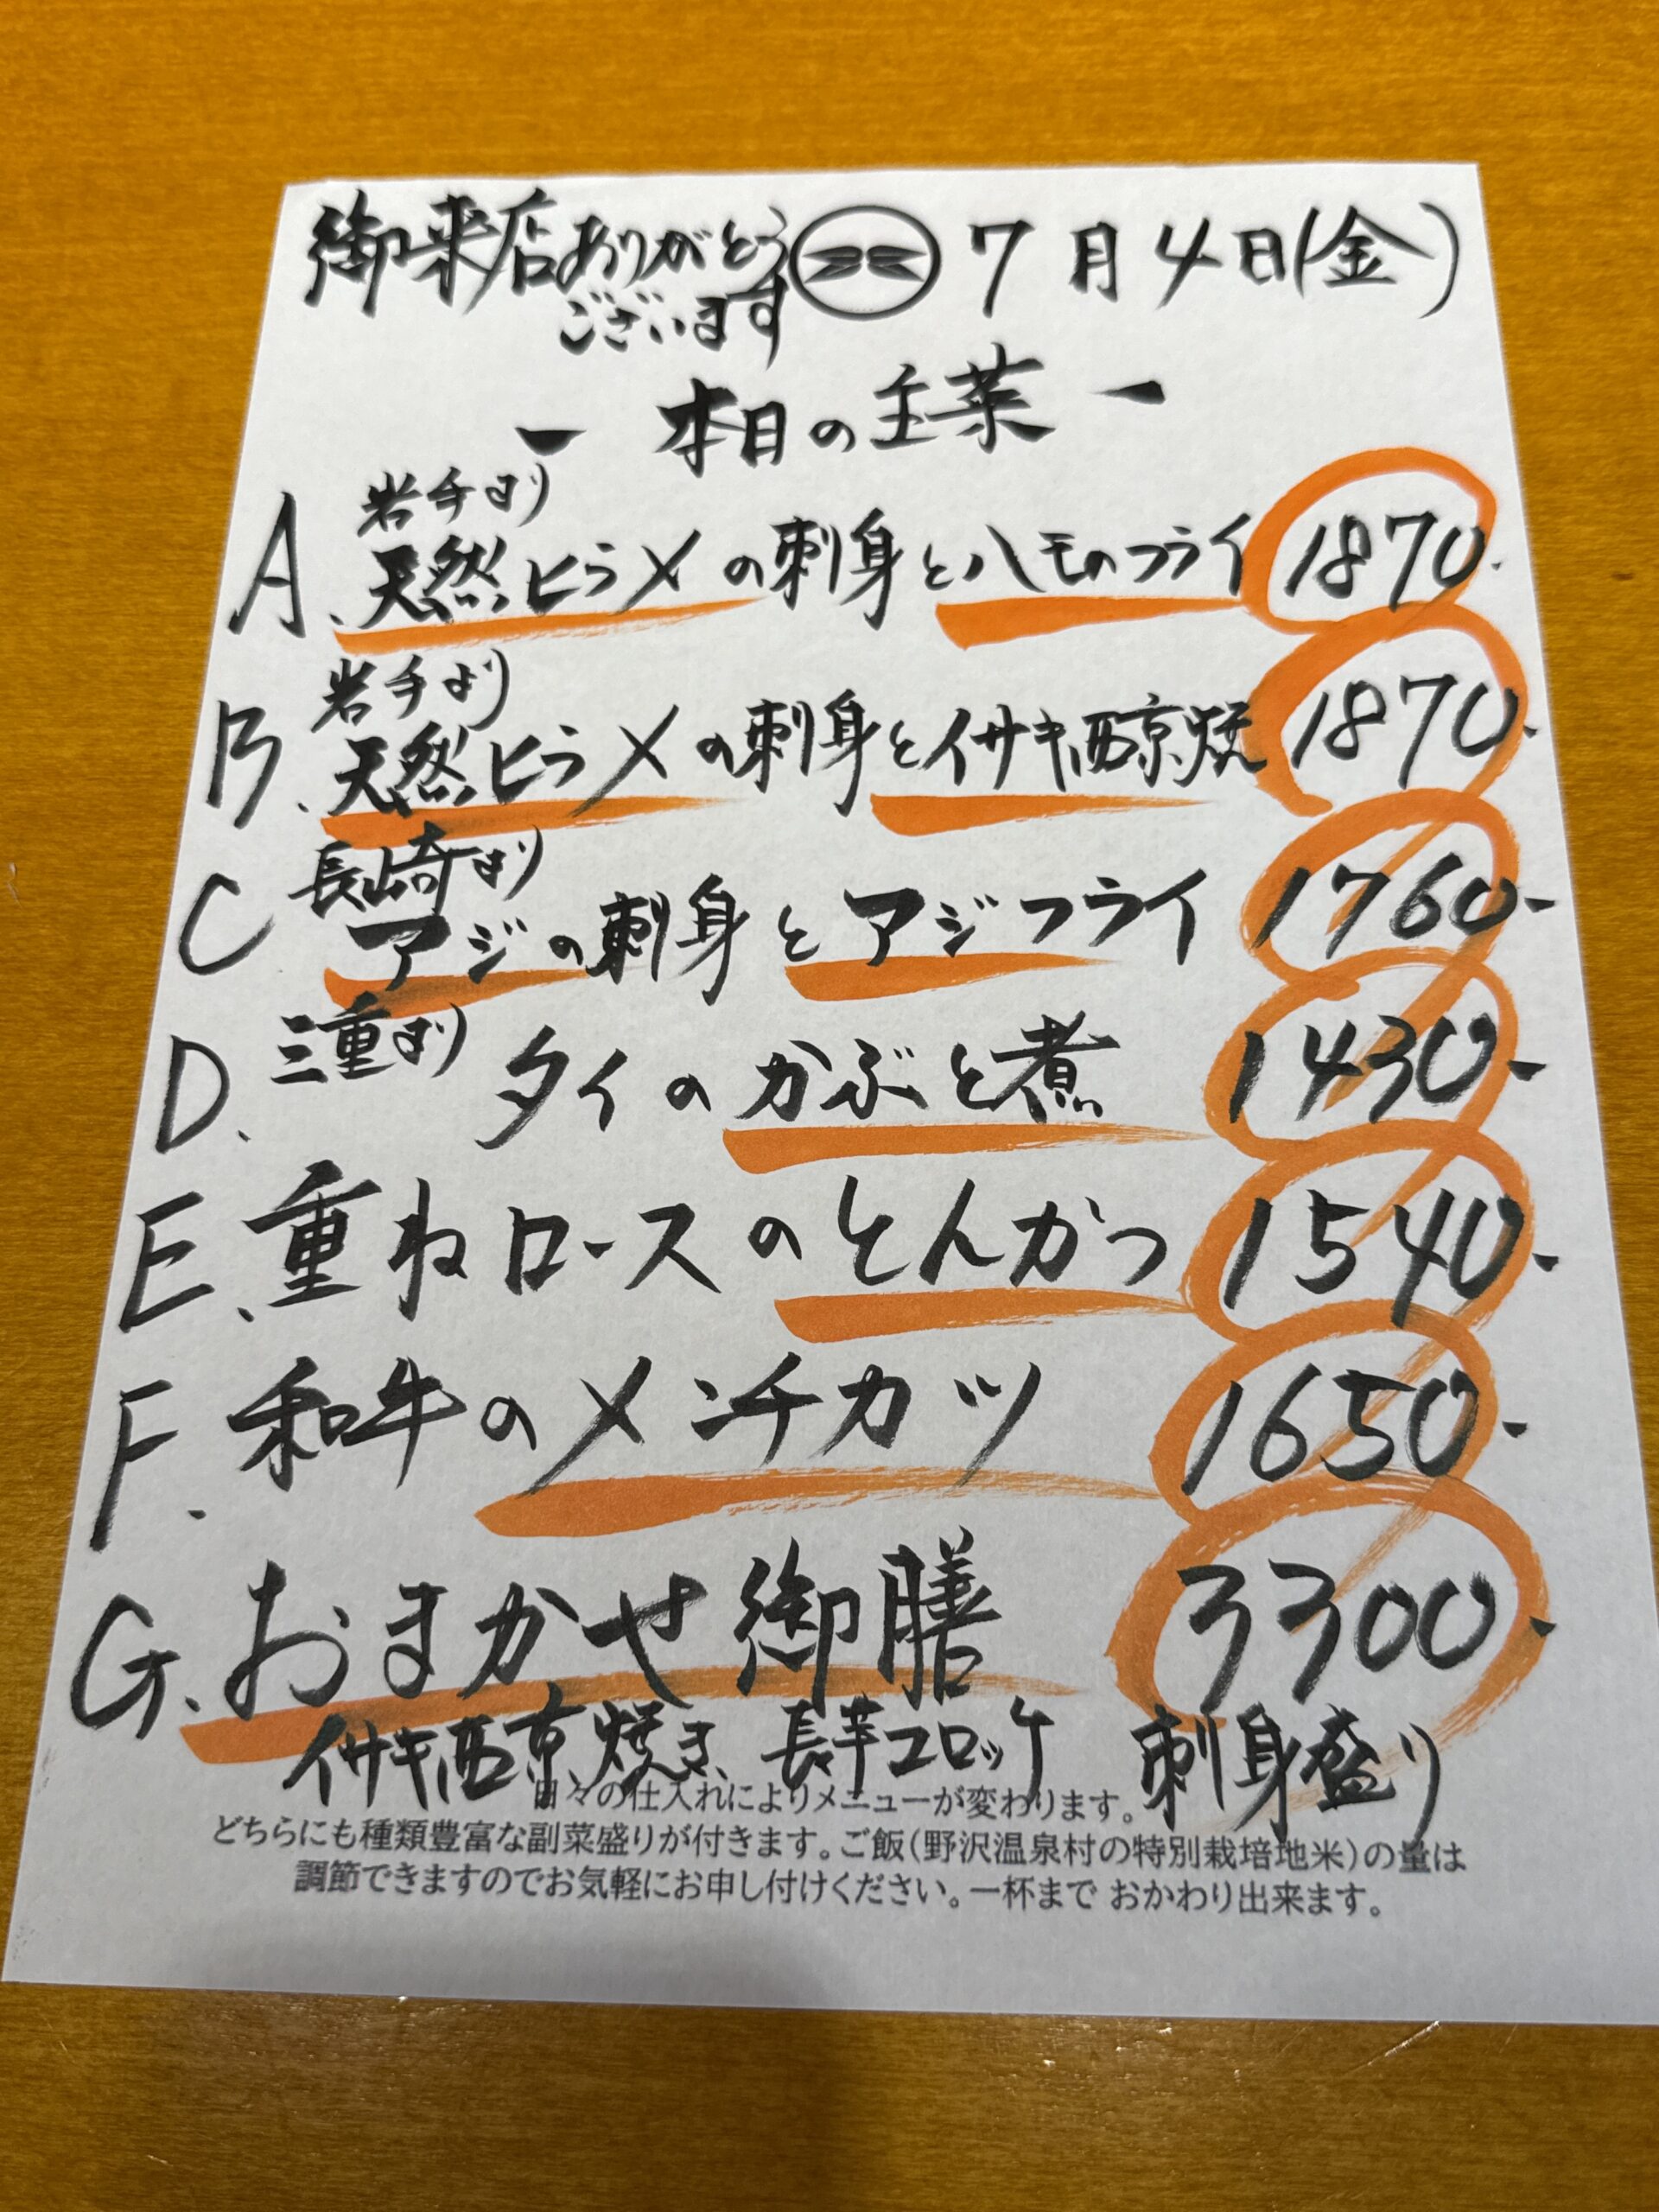 御来店ありがとう
ございます
7月4日(金)
ー 本日の主菜 ー
岩手より
A.天然ヒラメの刺身とハモのフライ 1870.
岩手より
B.天然ヒラメの刺身とイサキ西京焼 1870.
長崎より
C アジの刺身とアジフライ 1760-
D.三重より タイのかぶと煮 1430-
E.重ねロースのとんかつ 1540-
F.和牛のメンチカツ 1650-
G.おまかせ御膳 3300-
イサキ西京焼き、長芋コロッケ 刺身盛り
日々の仕入れによりメニューが変わります。
どちらにも種類豊富な副菜盛りが付きます。ご飯(野沢温泉村の特別栽培地米)の量は
調節できますのでお気軽にお申し付けください。一杯まで おかわり出来ます。